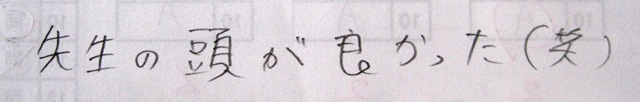 先生の頭が良かった(笑)